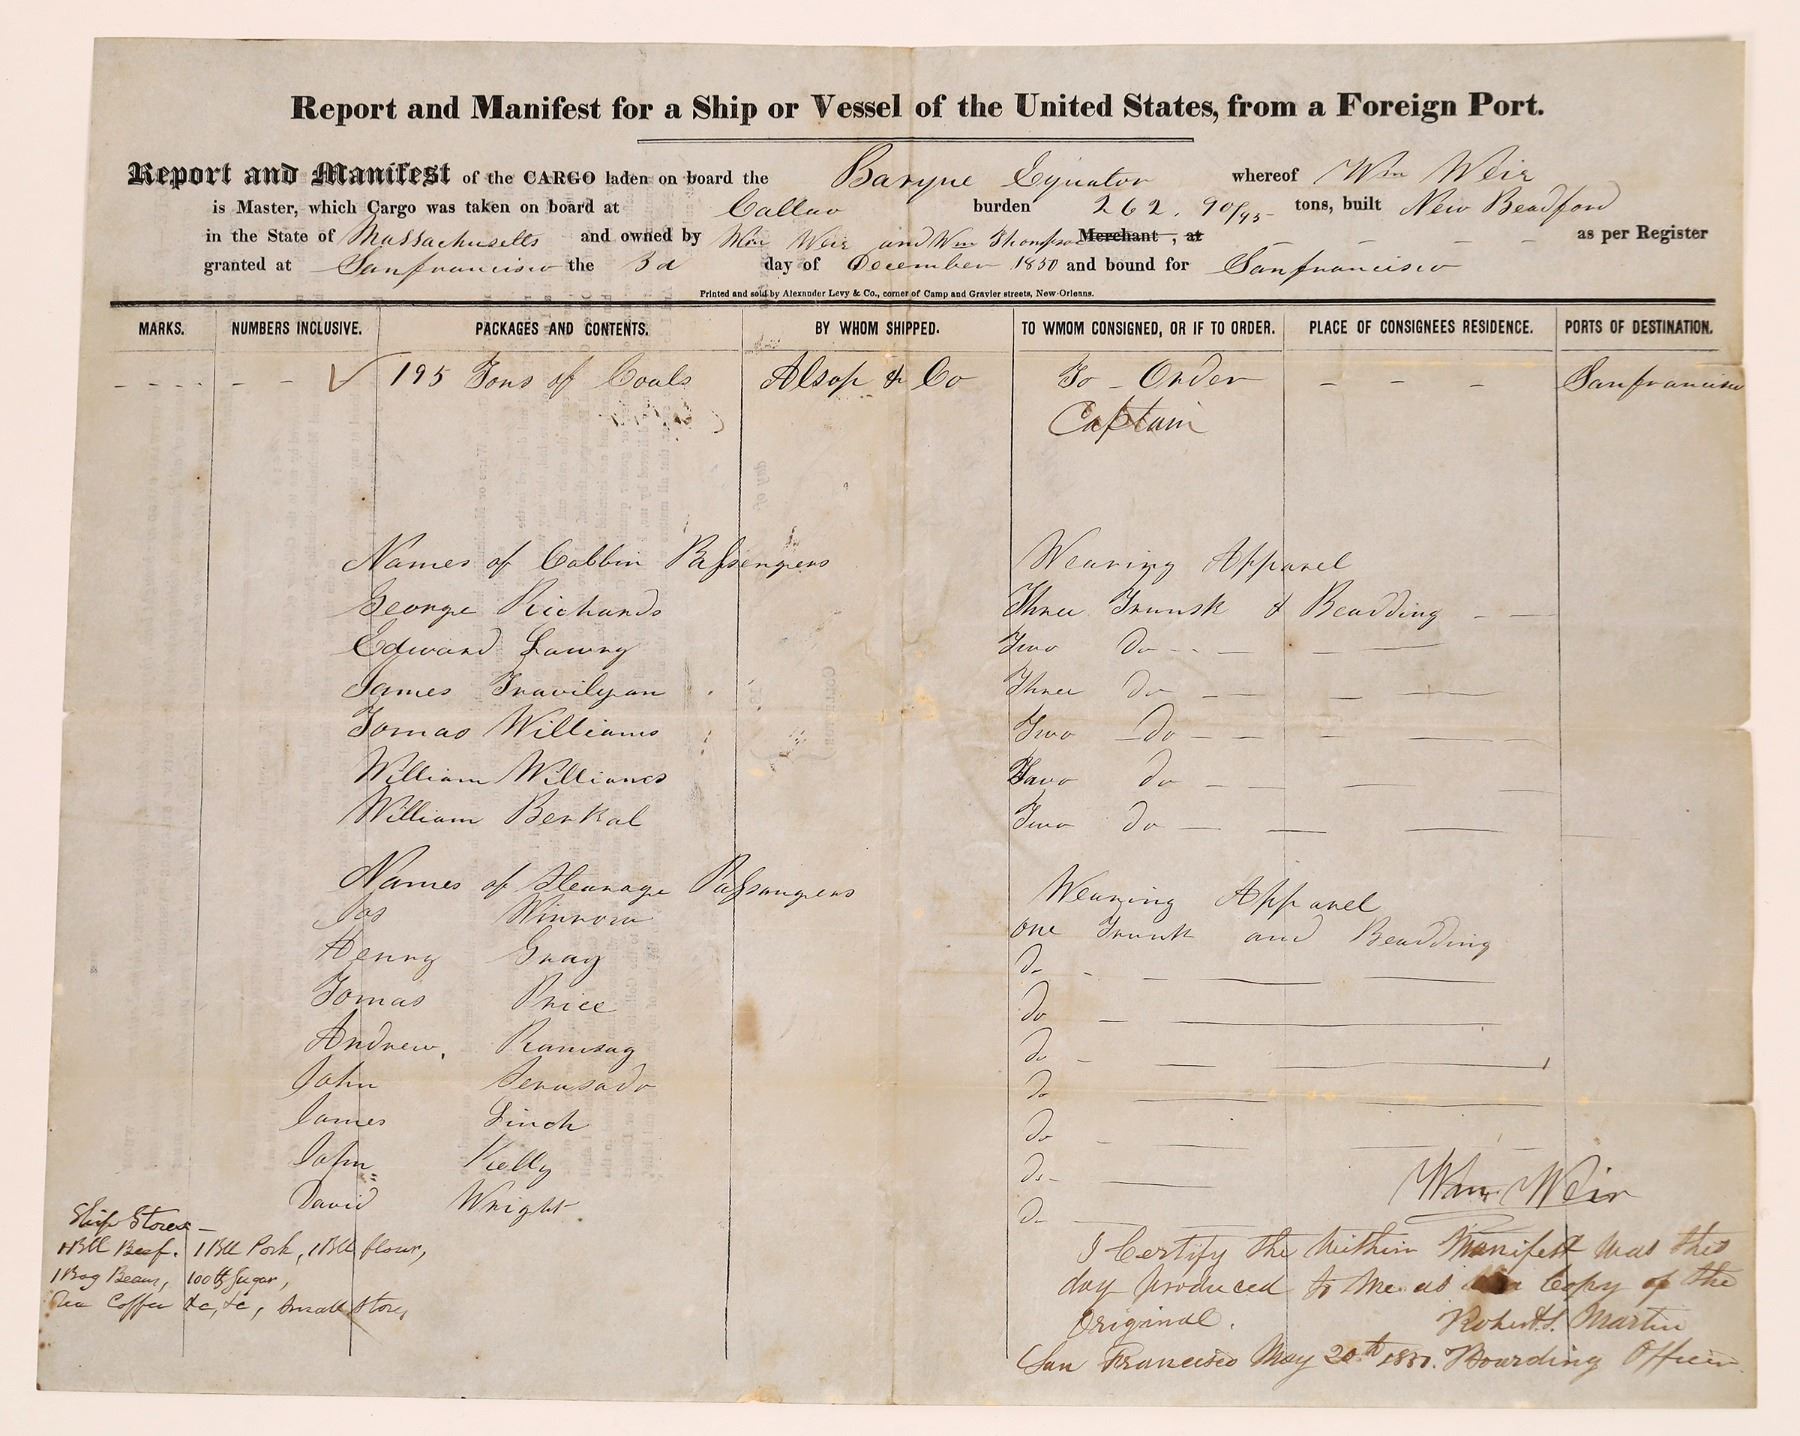 Report and Manifest for a Ship or Vessel of the United States, from a Foreign Port.
Report and Manifest of the CARGO laden on board the Barque Equator whereof Wm Weir
is Master, which Cargo was taken on board at Callao burden 262. 90/95 tons, built New Beadford
in the State of Massachusetts and owned by Wm Weir and Wm Thompson Merchant, at — — — — as per Register
granted at Sanfrancisco the 3d day of December 1850 and bound for Sanfrancisco
Printed and sold by Alexander Levy & Co., corner of Camp and Gravier streets, New-Orleans.
MARKS. NUMBERS INCLUSIVE. PACKAGES AND CONTENTS. BY WHOM SHIPPED. TO WMOM CONSIGNED, OR IF TO ORDER. PLACE OF CONSIGNEES RESIDENCE. PORTS OF DESTINATION.
- - - - - - ✓ 195 Tons of Coals Alsop & Co To - Order - - - Sanfrancisco
Captain
Names of Cabbin Passengers Wearing Apparel
George Richards Three Trunsk & Beadding - -
Edward Lawry Two Do - - - - -
James Travilyan Three do - - - -
Tomas Williams Two - Do - - - -
William Williams Two do - - - -
William Berkal Two do - - -
Names of Stearage Passangers Wearing Apparel
Jas Winrow one Trunk and Beadding
Henry Gray Do - - - -
Tomas Price Do - -
Andrew. Ramsay Do - - -
John Do - -
James Linch Do - - -
John Kelly Do - -
David Wright Do -
Wm Weir
Ship Stores -
1 Bll Beef. 1 Bll Pork, 1 Bll flour,
1 Bag Beans, 100 lb Sugar,
Tea Coffee &c, &c, Small Stores,
I Certify the Within Manifest was this
day produced to me as a Copy of the
Original. Robert S. Martin
San Francisco May 20th 1851. Boarding Officer